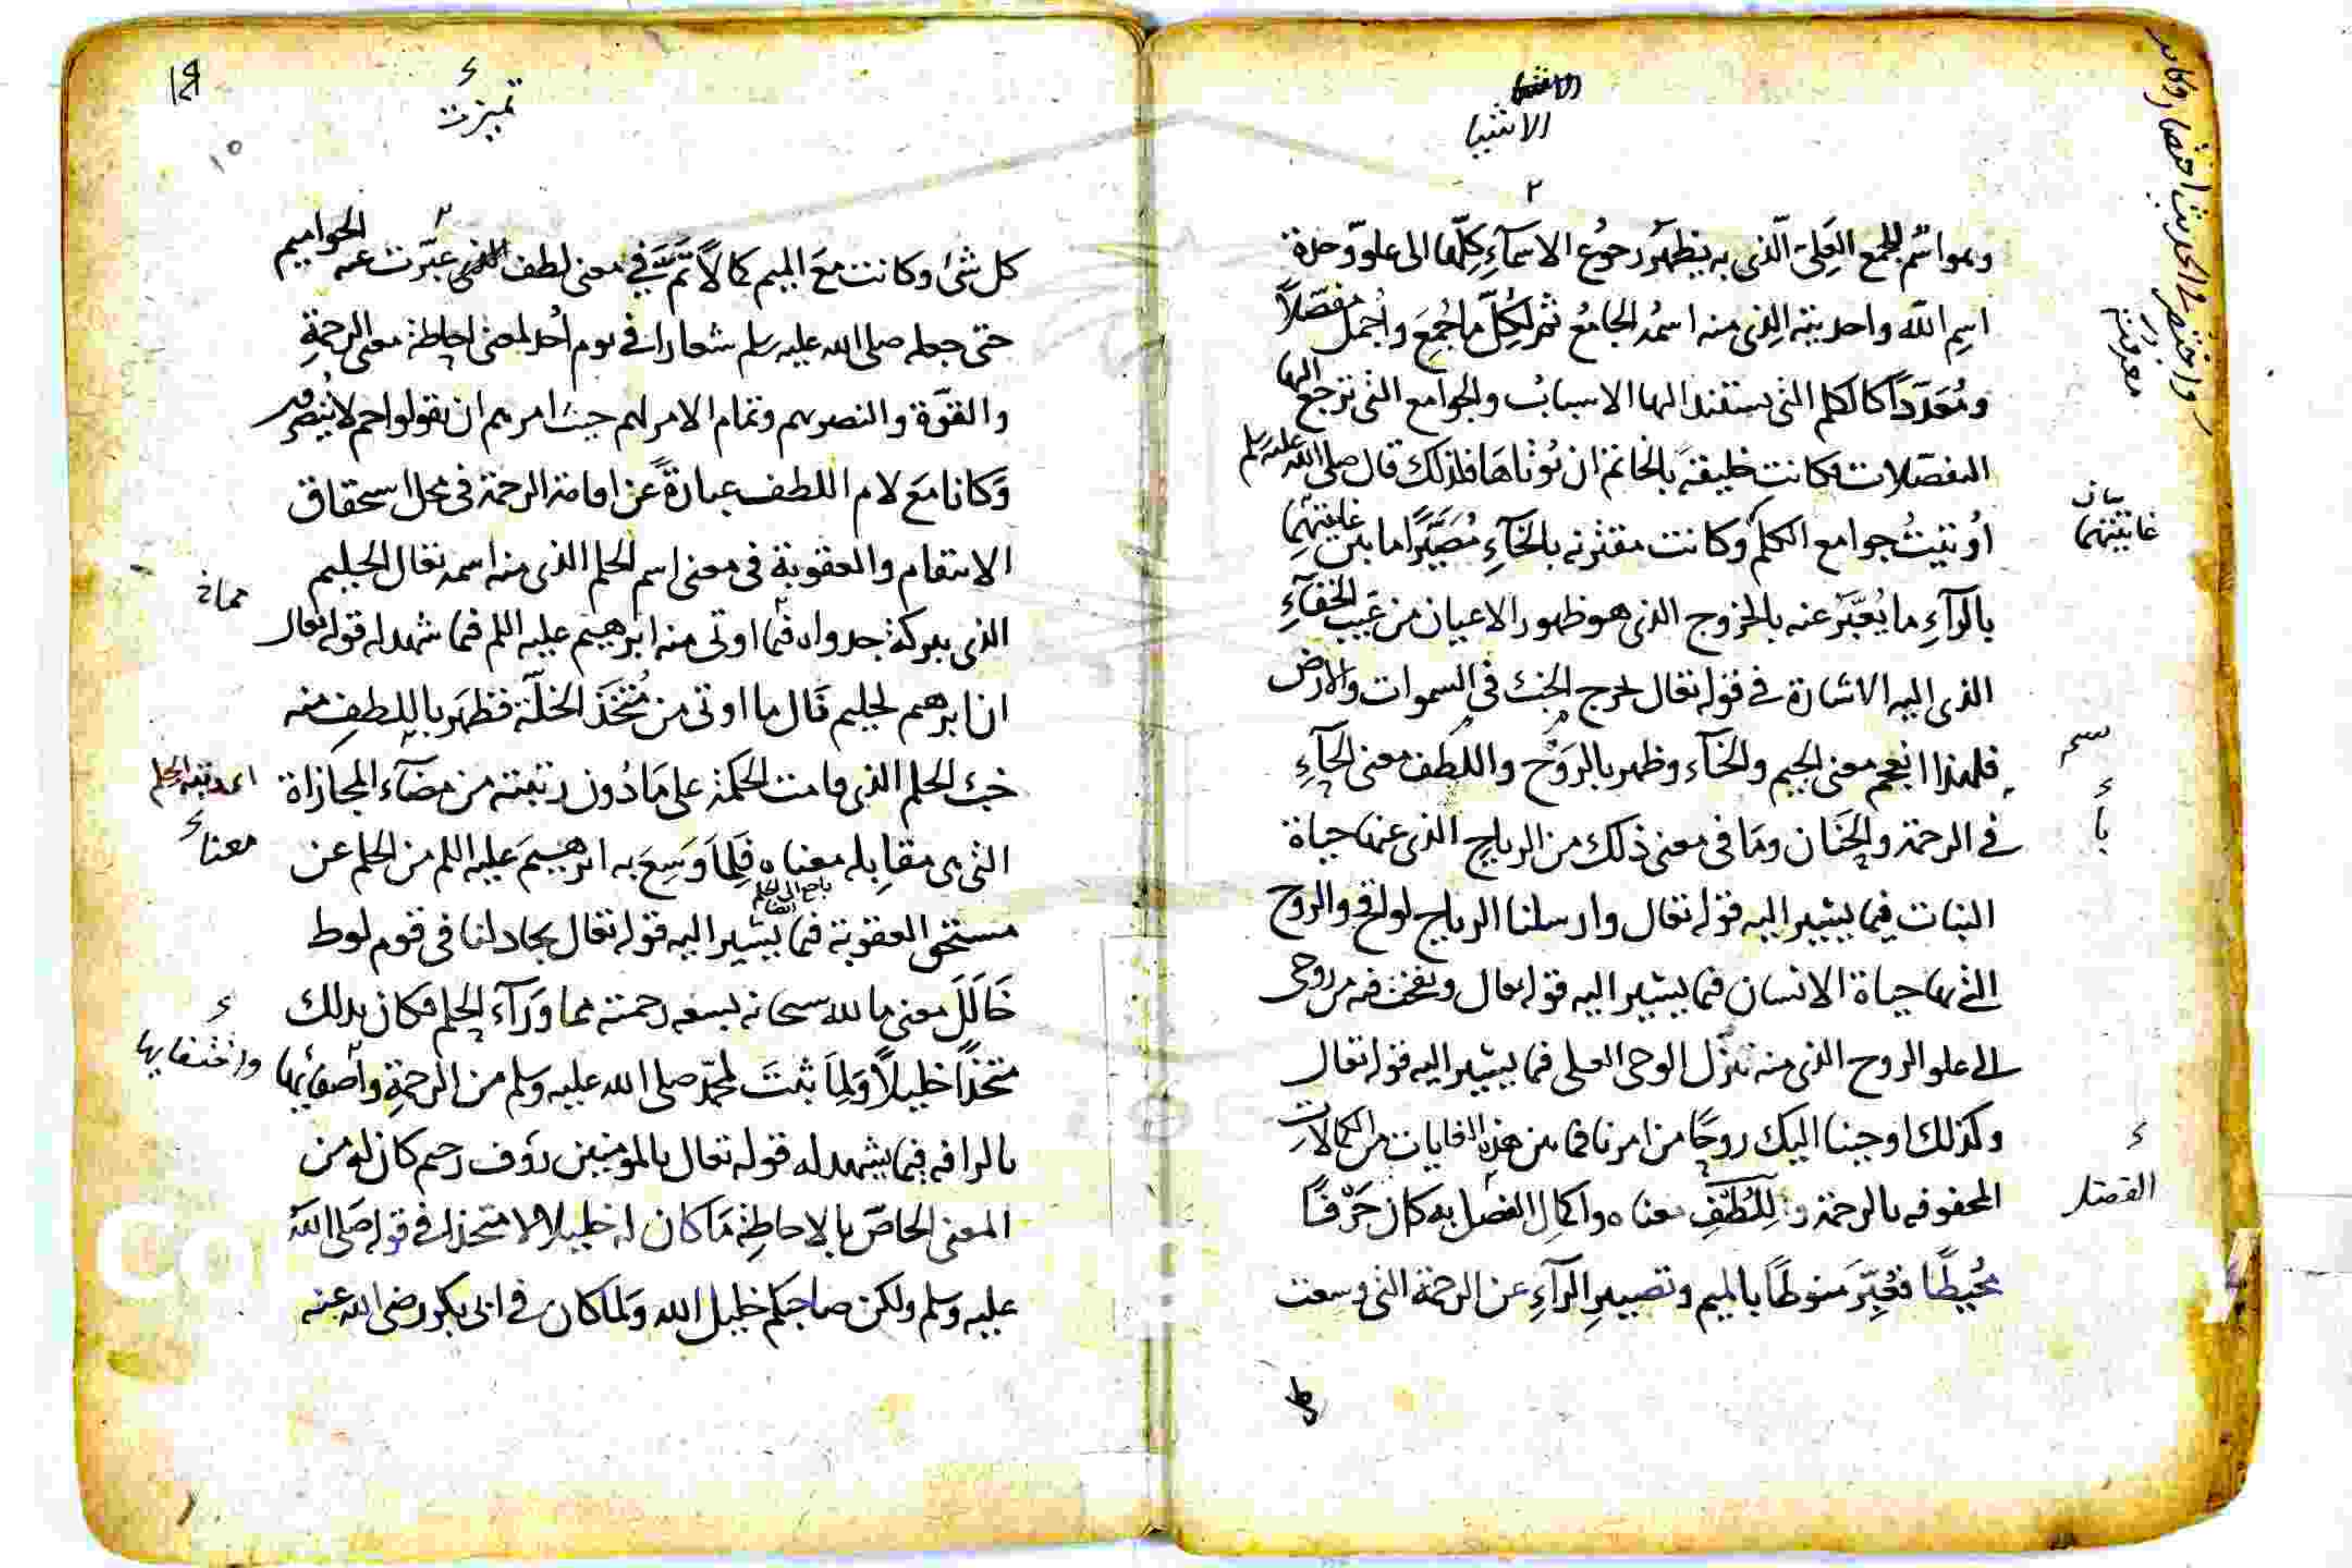 الاشيا
وهو اسم للجمع العلي الذي به يظهر رجوع الاسمآء كلها الى علو وحدة
اسم الله واحديته الذي منه اسمه الجامع ثم لكل ما جُمِعَ واُجمل مفصّلاً
ومُعَدَّداً كالكلم التي يستند اليها الاسباب والجوامع التي ترجع اليها
المفصّلات فكانت خليقة بالخاتم ان يُوتاها فلذلك قال صلى الله عليه وسلم
اُوتيتُ جوامع الكلم وكانت مقترنه بالخآءِ مُصَيَّرًا ما بين غايتهما
بالرآءِ ما يُعَبَّرُ عنه بالخروج الذي هو ظهور الاعيان من غيب الخفآءِ
الذي اليه الاشارة في قوله تعالى يخرج الخبْ في السموات والارض
فلهذا انعجم معنى الجيم والخآء وظهر بالرَوْح واللطف معنى الحآءِ
في الرحمة والحنان وما في معنى ذلك من الرياح الذي عنها حياة
النبات فيما يشير اليه قوله تعالى وارسلنا الرياح لواقح والروح
التي بها حياة الانسان فيما يشير اليه قوله تعالى ونفخت فيه من روحي
الى علو الروح الذي منه تنزّل الوحي العلي فيما يشير اليه قوله تعالى
وكذلك اوحينا اليك روحًا من امرنا فما بين هذه الغايات من الكمالات
المحفوفه بالرحمة و لِلُطْفِ معناه واكمال الفصل به كان حَرْفًا
مُحيطًا فعُبِّرَ منوطًا بالميم وتصيير الرآءِ عن الرحمة التي وسعت
واختصر لي الحديث اختصارا وكانت
معرفته
بيان
غايتهما
سم
يا
الفصل
تميزت
١٥
كل شئ وكانت مع الميم كمالاً تَمَّ في معنى لطف عبّرت عنه الحواميم
حتى جعله صلى الله عليه وسلم شعارا في يوم اُحد لمعنى احاطة معنى الرحمةِ
والقوّة والنصر بهم وتمام الامر لهم حيث امرهم ان يقولوا حم لا يُنصَرون
وَكانا مَعَ لام اللطف عبارةً عن افاضة الرحمة في محل استحقاق
الانتقام والعقوبة في معنى اسم الحلم الذي منه اسمه تعالى الحليم
الذي ببركة جدواه فما اوتي منه ابرهيم عليه السلم فيما شهد له قوله تعالى
ان ابرهيم لحليم قال ما اوتي من مُتّخَذَ الخلّة فظهر باللطف منه
خبْ الحلم الذي قامت الحكمة على مَا دُون رتبته من مضآء المجازاة
التي هي مقابله معناه فلِمَا وَسِعَ به ابرهيمَ عليه السلم من الحلم عن
مستحق العقوبة فيما يشير اليه قوله تعالى يجادلنا في قوم لوط
خَالَلَ معنى ما لله سبحانه بسعه رحمته مما ورآء الحلم فكان بذلك
متخذًا خليلاً وَلِمَا ثبتَ لمحمّد صلى الله عليه وسلم من الرحمةِ واصفايها
بالرافه فيما يشهد له قوله تعالى بالمومنين رؤف رحيم كان له من
المعنى الخاصّ بالاحاطة مَا كان له خليلا لا متخذا في قوله صلى الله
عليه وسلم ولكن صاحبكم خليل الله ولما كان في ابى بكر رضى الله عنه
معناه